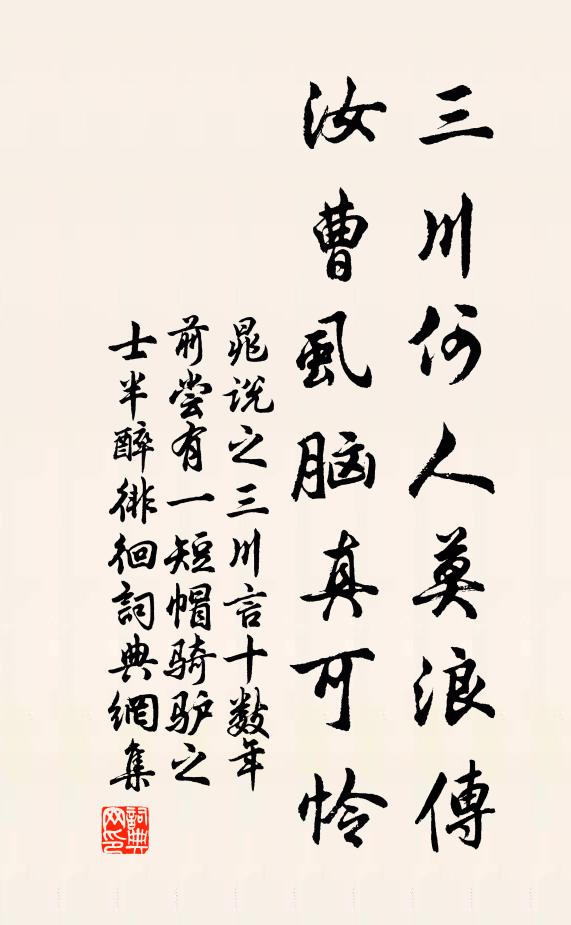 三川何人莫浪傳
汝曹虱脑真可怜
晁说之三川言十数年
前尝有一短帽骑驴之
士半醉徘徊詞典網集
詞典
网印